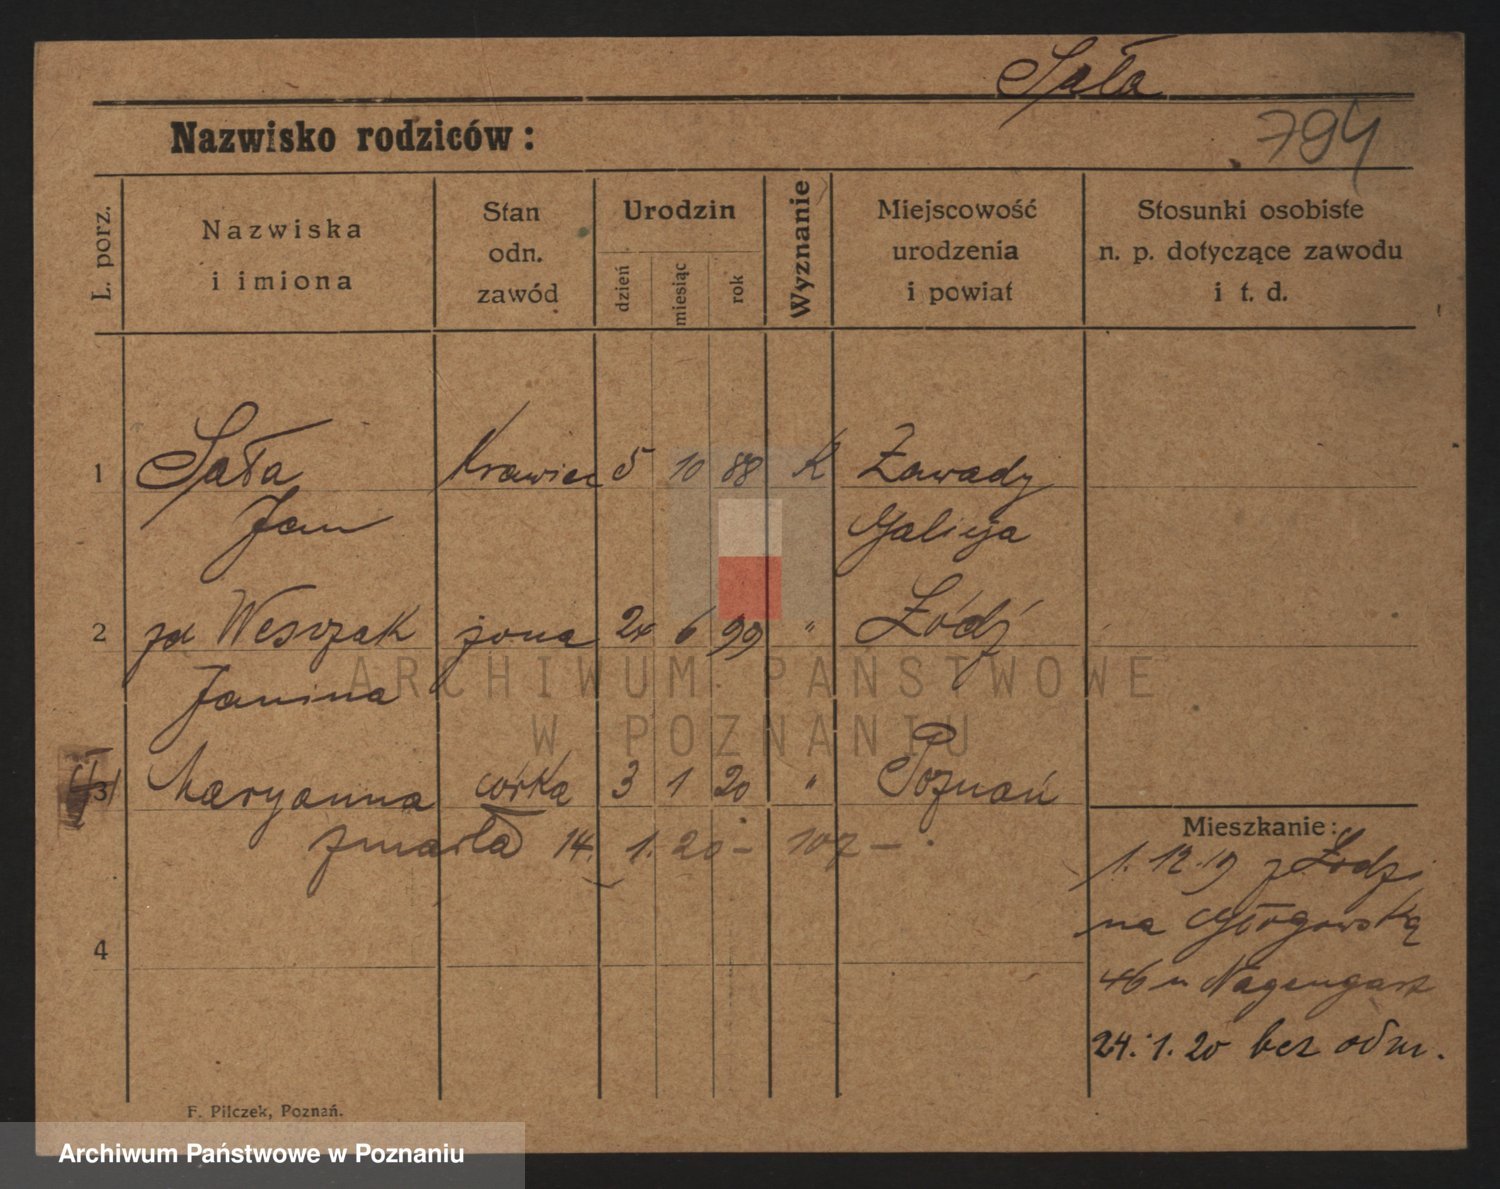 Sała
794
Nazwisko rodziców:
L. porz.
Nazwiska
i imiona
Stan
odn.
zawód
Urodzin
dzień
miesiąc
rok
Wyznanie
Miejscowość
urodzenia
i powiat
Stosunki osobiste
n. p. dotyczące zawodu
i t. d.
1 Sała Krawiec 5 10 88 K Zawady
Jan Galicja
2 zd Weszczak żona 24 6 99 " Łódź
Janina
3 Maryanna córka 3 1 20 " Poznań
zmarła 14. 1. 20 – 107 –
4
Mieszkanie:
1. 12. 19 z Łodzi
na Głogowską
46 u
24. 1. 20 bez odm.
F. Pilczek, Poznań.
ARCHIWUM PAŃSTWOWE
W POZNANIU
Archiwum Państwowe w Poznaniu